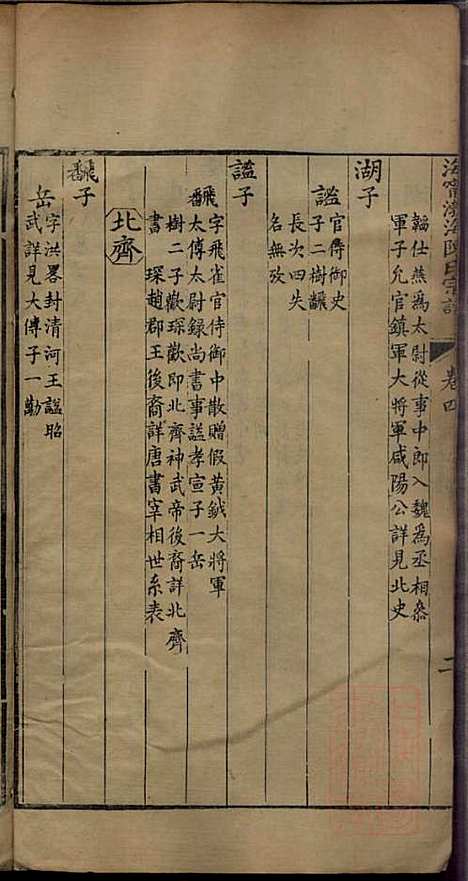 海寧渤海陳氏宗譜
卷四
二
韜仕燕為太尉從事中郎入魏為丞相叅
軍子允官鎮軍大將軍咸陽公詳見北史
湖子
謐
官侍御史
子二樹飜
長次四失
名無攷
謐子
飜
字飛雀官侍御中散贈假黃鉞大將軍
太傅太尉録尚書事謚孝宣子一岳
樹二子歡琛歡即北齊神武帝後裔詳北齊
書 琛趙郡王後裔詳唐書宰相世系表
北齊
飜子
岳
字洪畧封清河王謚昭
武詳見大傳子一勱